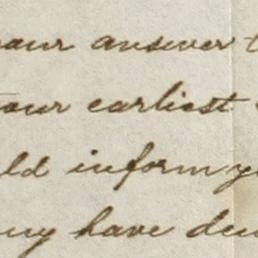 your answer t
our earliest
ld inform y
ny have de